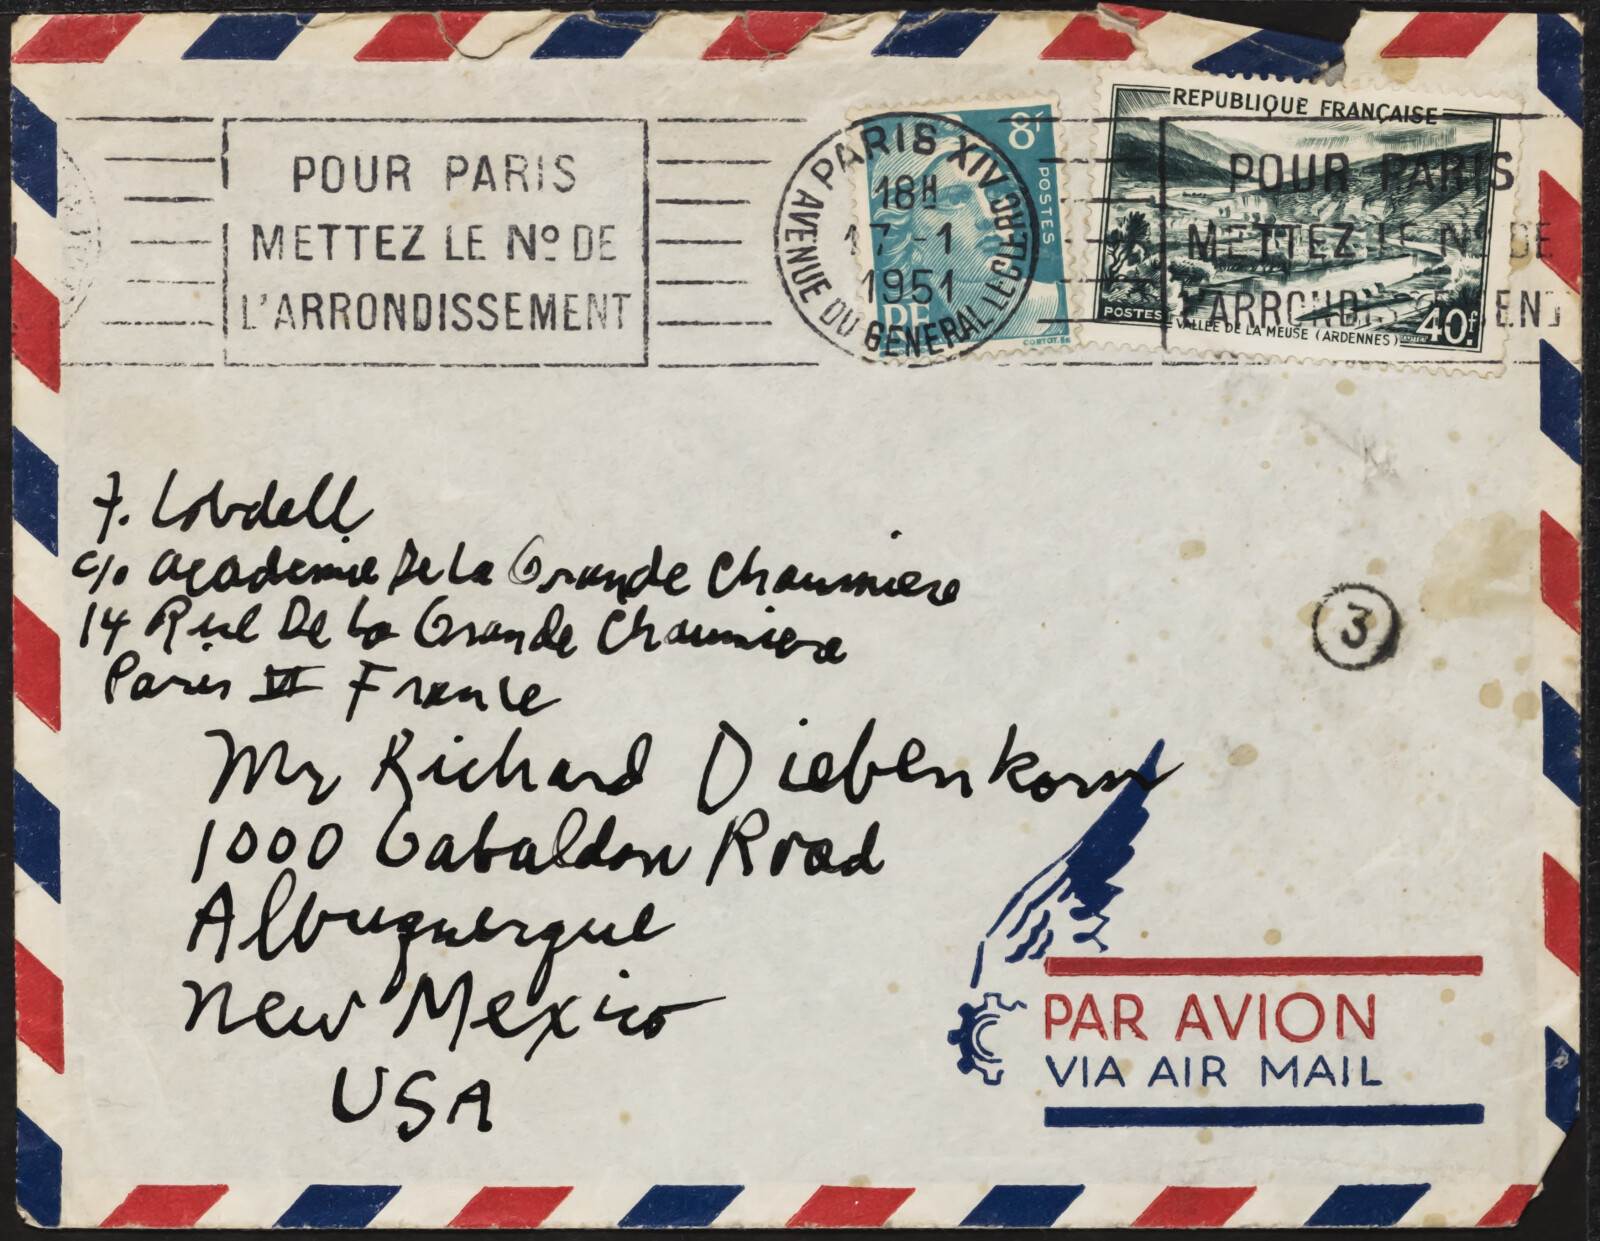 POUR PARIS
METTEZ LE Nº DE
L'ARRONDISSEMENT
PARIS XIV
18H
17 - 1
1951
AVENUE DU GENERAL LECLERC
8F
POSTES
RF
CORTOT. DEL
REPUBLIQUE FRANÇAISE
POSTES
VALLÉE DE LA MEUSE (ARDENNES)
40f.
POUR PARIS
METTEZ LE Nº DE
L'ARRONDISSEMENT
F. Lobdell
c/o Academie De La Grande Chaumiere
14 Rue De La Grande Chaumiere
Paris VI France
Mr Richard Diebenkorn
1000 Gabaldon Road
Albuquerque
New Mexico
USA
3
PAR AVION
VIA AIR MAIL